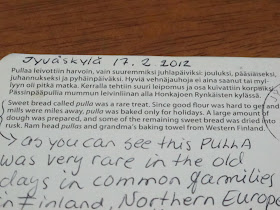 Jyväskylä 17. 2. 2012
Pullaa leivottiin harvoin, vain suuremmiksi juhlapäiviksi: jouluksi, pääsiäiseksi,
juhannukseksi ja pyhäinpäiväksi. Hyviä vehnäjauhoja ei aina saanut tai myl-
lyyn oli pitkä matka. Kerralla tehtiin suuri leipomus ja osa kuivattiin korpuiksi.
Pässinpääpullia mummun leivinliinan alla Honkajoen Rynkäisten kylässä.
Sweet bread called pulla was a rare treat. Since good flour was hard to get and
mills were miles away, pulla was baked only for holidays. A large amount of
dough was prepared, and some of the remaining sweet bread was dried into
rusk. Ram head pullas and grandma's baking towel from Western Finland.
→ as you can see this PULLA
was very rare in the old
days in common families
in Finland, Northern Europe